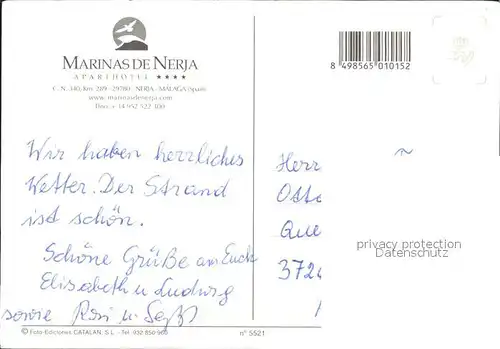 MARINAS DE NERJA
APARTHOTEL ★★★★
C.N. 340, Km. 289 - 29780 - NERJA - MÁLAGA (Spain)
www.marinasdenerja.com
8 498565 010152
Wir haben herrliches
Wetter. Der Strand
ist schön.
Schöne Grüße an Euch
Elisabeth u Ludwig
sowie Rosi u
Herr
Otto
Que
privacy protection
Datenschutz
372
© Foto-Ediciones CATALAN, S.L. - Tel. 932 850 960
nº 5521